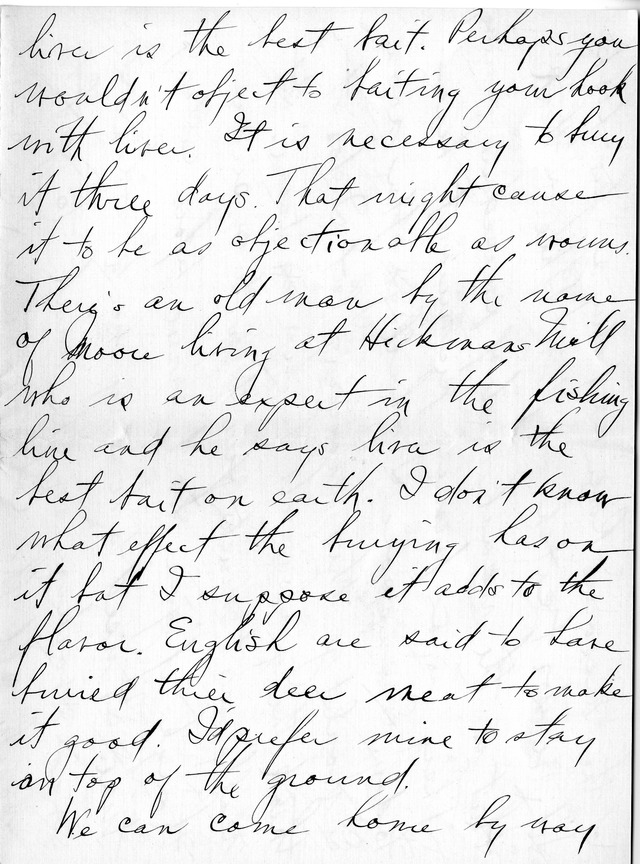 liver is the best bait. Perhaps you
wouldn't object to baiting your hook
with liver. It is necessary to bury
it three days. That might cause
it to be as objectionable as worms.
There's an old man by the name
of Moore living at Hickmans Mill
who is an expert in the fishing
line and he says liver is the
best bait on earth. I don't know
what effect the burying has on
it but I suppose it adds to the
flavor. English are said to have
buried thier deer meat to make
it good. I'd prefer mine to stay
on top of the ground.
We can come home by way